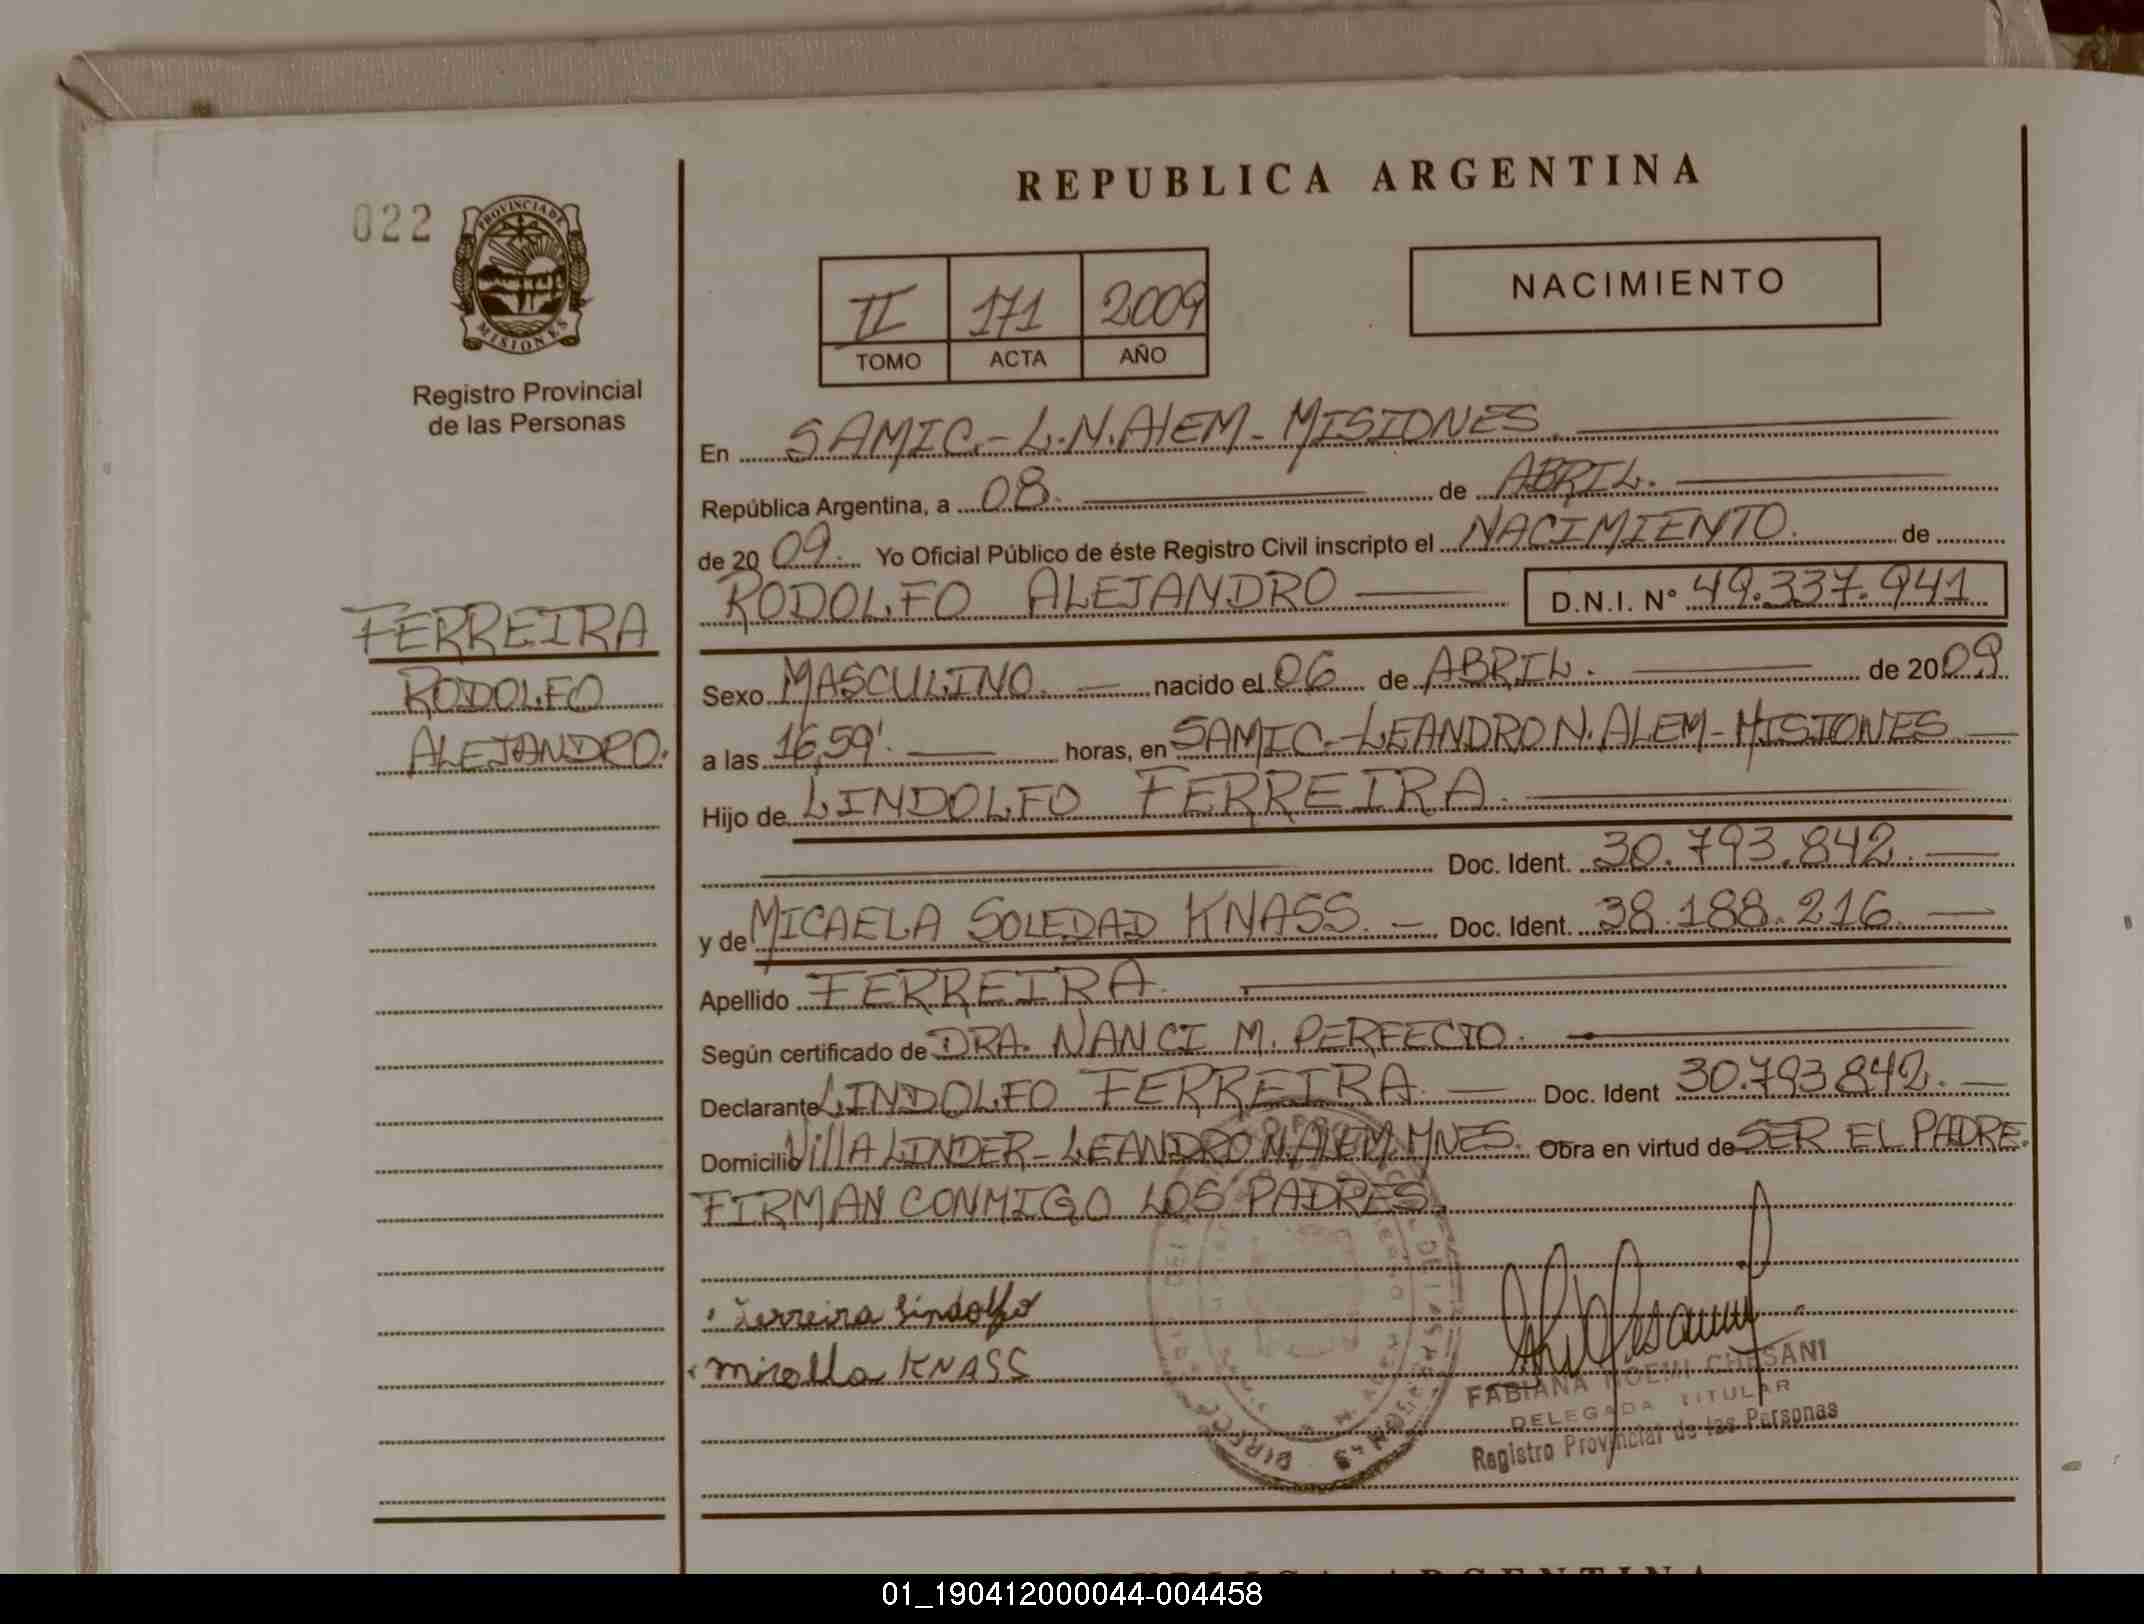 REPUBLICA ARGENTINA
022
PROVINCIA DE
MISIONES
Registro Provincial
de las Personas
NACIMIENTO
II 171 2009
TOMO ACTA AÑO
En SAMIC.-L.N.AlEM-MISIONES.
República Argentina, a 08. de ABRIL.
de 20 09. Yo Oficial Público de éste Registro Civil inscripto el NACIMIENTO. de
RODOLFO ALEJANDRO D.N.I. Nº 49.337.941
FERREIRA
RODOLFO
ALEJANDRO.
Sexo MASCULINO. nacido el 06 de ABRIL. de 2009.
a las 16,59'. horas, en SAMIC.-LEANDRO N. ALEM-MISIONES
Hijo de LINDOLFO FERREIRA.
Doc. Ident. 30.793.842.
y de MICAELA SOLEDAD KNASS. Doc. Ident. 38.188.216.
Apellido FERREIRA.
Según certificado de DRA. NANCI M. PERFECTO.
Declarante LINDOLFO FERREIRA. Doc. Ident 30.793.842.
Domicilio VillA LINDER-LEANDRO N. ALEM. MNES. Obra en virtud de SER EL PADRE.
FIRMAN CONMIGO LOS PADRES.
Ferreira Lindolfo
KNASS
FABIANA NOEMI CHESANI
DELEGADA TITULAR
Registro Provincial de las Personas
REPUBLICA ARGENTINA
01_190412000044-004458